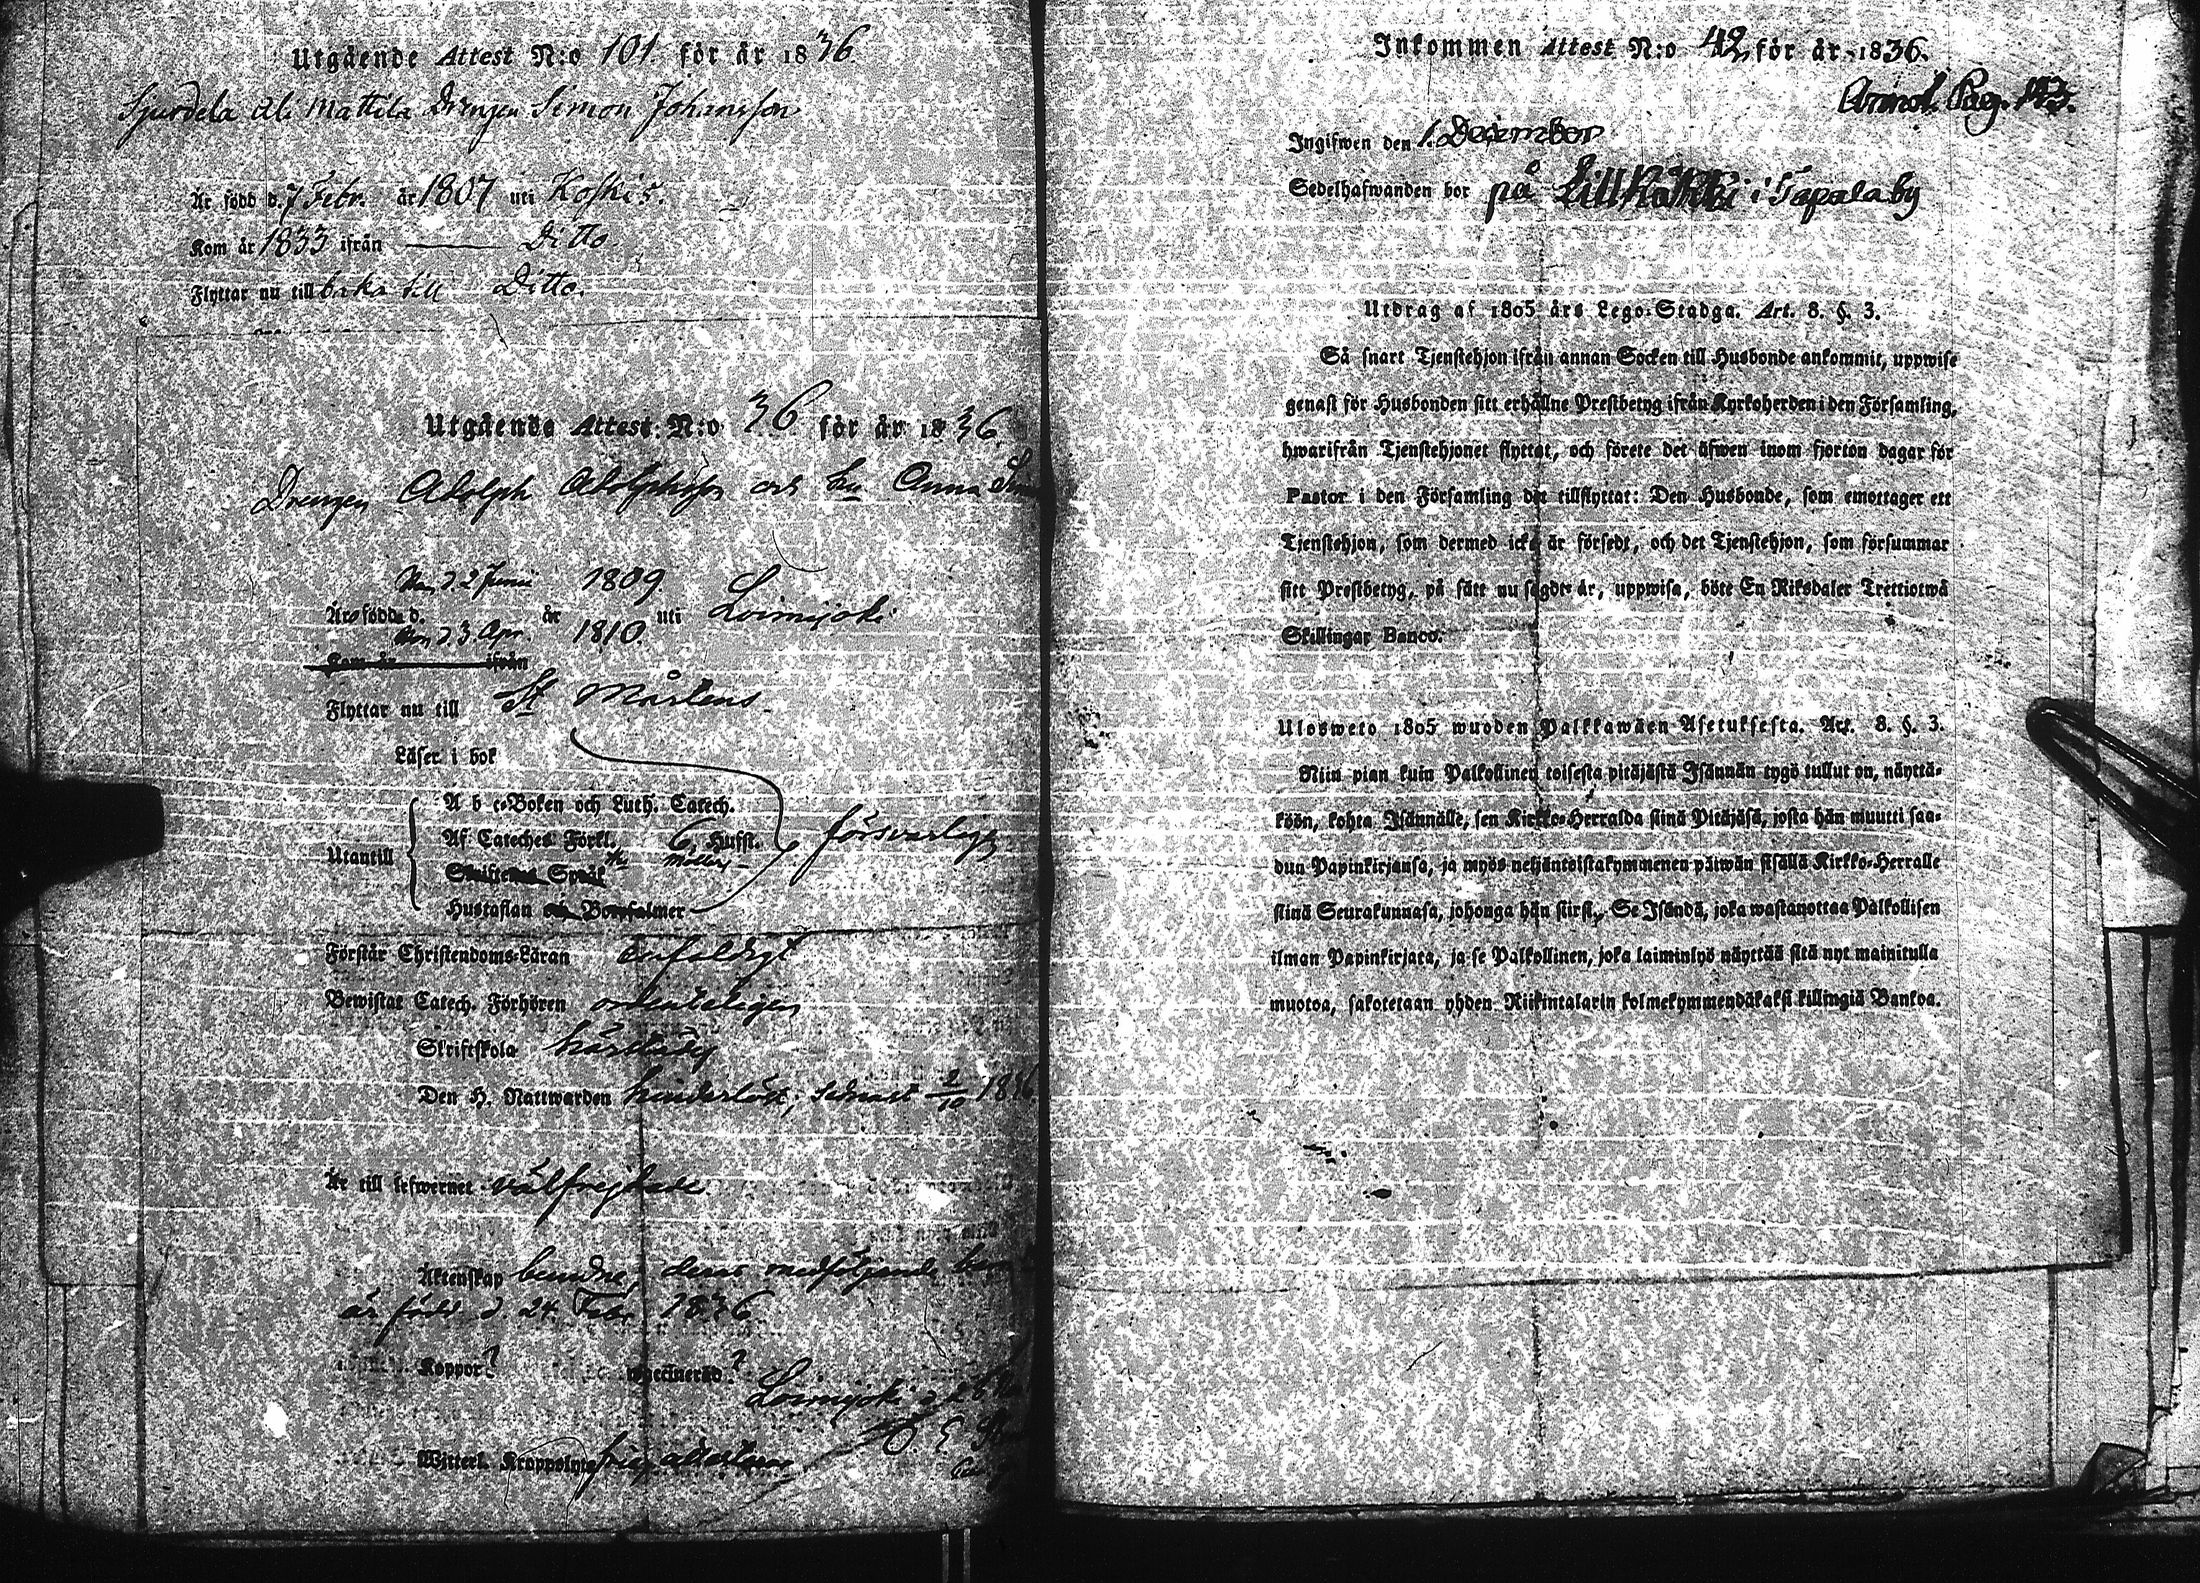 Utgående Attest N:o 101. för år 1836.
Drengen Simon Johansson
Är född d. 7 Febr. år 1807 uti Koskis.
Kom år 1833 ifrån — Ditto
Flyttar nu tillbaka till Ditto.
Utgående Attest. N:o 36 för år 1836.
Drengen Adolph Adolphsson och hu Anna
Man d. 2 Junii 1809.
Äro födde d. år uti Loimijoki
d. 3 Apr. 1810.
Kom år ifrån
Flyttar nu till St Mårtens
Läser i bok
A b c-Boken och Luth. Catech.
Af Cateches Förkl. 6, Hufst.
Utantill försvarligen
Skriftenes Språk
Hustaflan och Botpsalmer
Förstår Christendoms-Läran enfaldigt
Bewistat Catech. Förhören ordenteligen
Skriftskola
Den H. Nattwarden hinderlöst, senast 2/10 1836
Är till lefwernet välfrejdade
Äktenskap bundne, deras medföljande
är född d. 24 Febr. 1836.
Koppor? waccinerad?
Loimijoki d.
Witterl. Kroppslyte
Inkommen Attest N:o 42, för år 1836.
Annot. Pag.
Ingifwen den 1. December
Sedelhafwanden bor på i Tapala by
Utdrag af 1805 års Lego-Stadga. Art. 8. §. 3.
Så snart Tjenstehjon ifrån annan Socken till Husbonde ankommit, uppwise
genast för Husbonden sitt erhållne Prestbetyg ifrån Kyrkoherden i den Församling,
hwarifrån Tjenstehjonet flyttat, och förete det äfwen inom fjorton dagar för
Pastor i den Församling det tillflyttat: Den Husbonde, som emottager ett
Tjenstehjon, som dermed icke är försedt, och det Tjenstehjon, som försummar
sitt Prestbetyg, på sätt nu sagdt är, uppwisa, böte En Riksdaler Trettiotwå
Skillingar Banco.
Ulosweto 1805 wuoden Palkkawäen Asetuksesta. Art. 8. §. 3.
Niin pian kuin Palkollinen toisesta pitäjästä Isännän tygö tullut on, näyttä-
köön, kohta Isännälle, sen Kirkko-Herralda siinä Pitäjäsä, josta hän muutti saa-
dun Papinkirjansa, ja myös neljäntoistakymmenen päiwän sisällä Kirkko-Herralle
siinä Seurakunnasa, johonga hän siirsi. Se Isändä, joka wastanottaa Palkollisen
ilman Papinkirjata, ja se Palkollinen, joka laiminlyö näyttää sitä nyt mainitulla
muotoa, sakotetaan yhden Riikintalarin kolmekymmendäkaksi killingiä Bankoa.